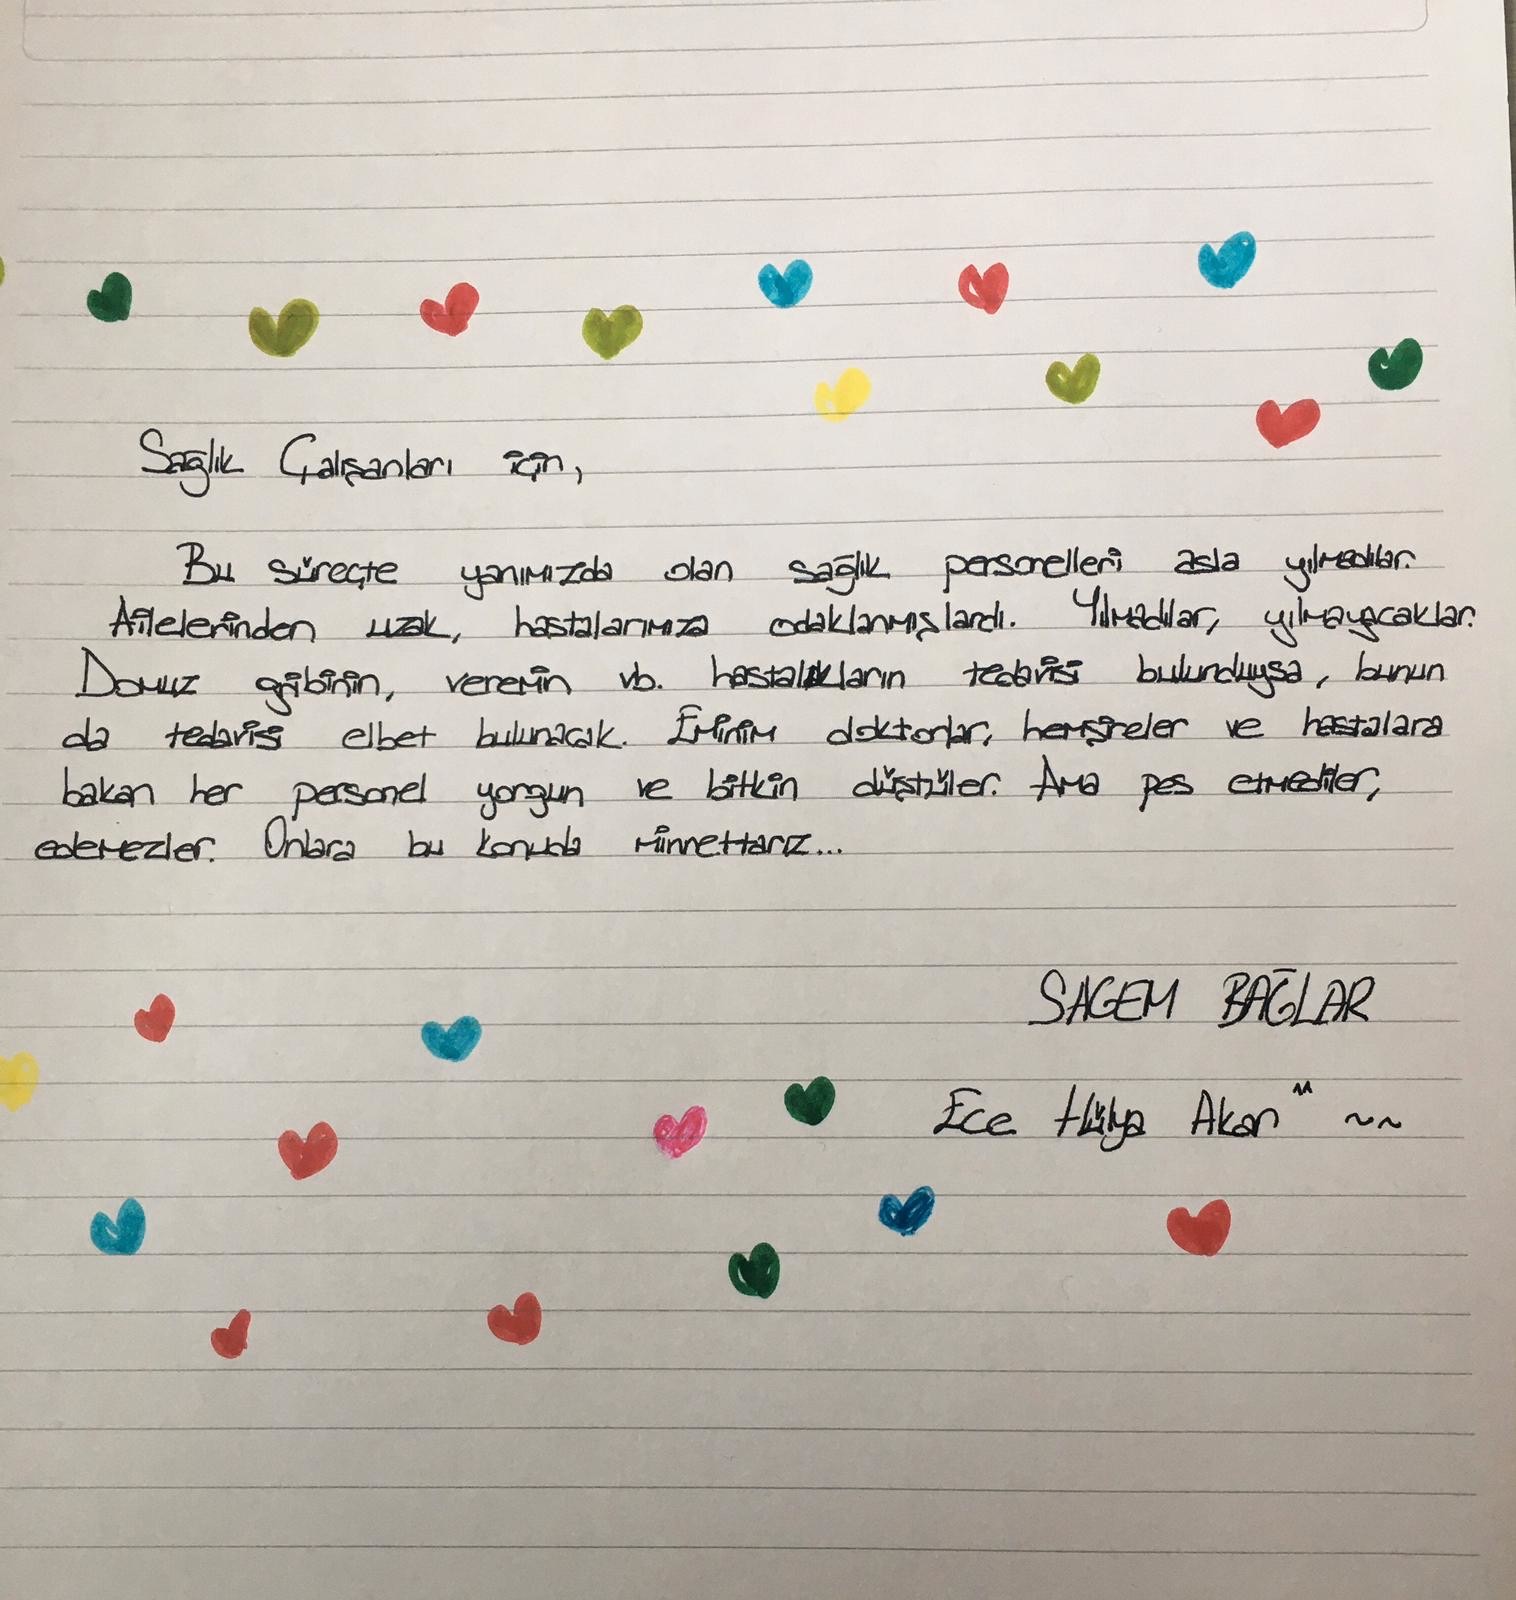 Sağlık Çalışanları için,
Bu süreçte yanımızda olan sağlık personelleri asla yılmadılar.
Ailelerinden uzak, hastalarımıza odaklanmışlardı. Yılmadılar, yılmayacaklar.
Domuz gribinin, veremin vb. hastalıkların tedavisi bulunduysa, bunun
da tedavisi elbet bulunacak. Eminim doktorlar, hemşireler ve hastalara
bakan her personel yorgun ve bitkin düştüler. Ama pes etmediler,
edemezler. Onlara bu konuda minnettarız...
SAGEM BAĞLAR
Ece Hülya Akan ^^ ~~